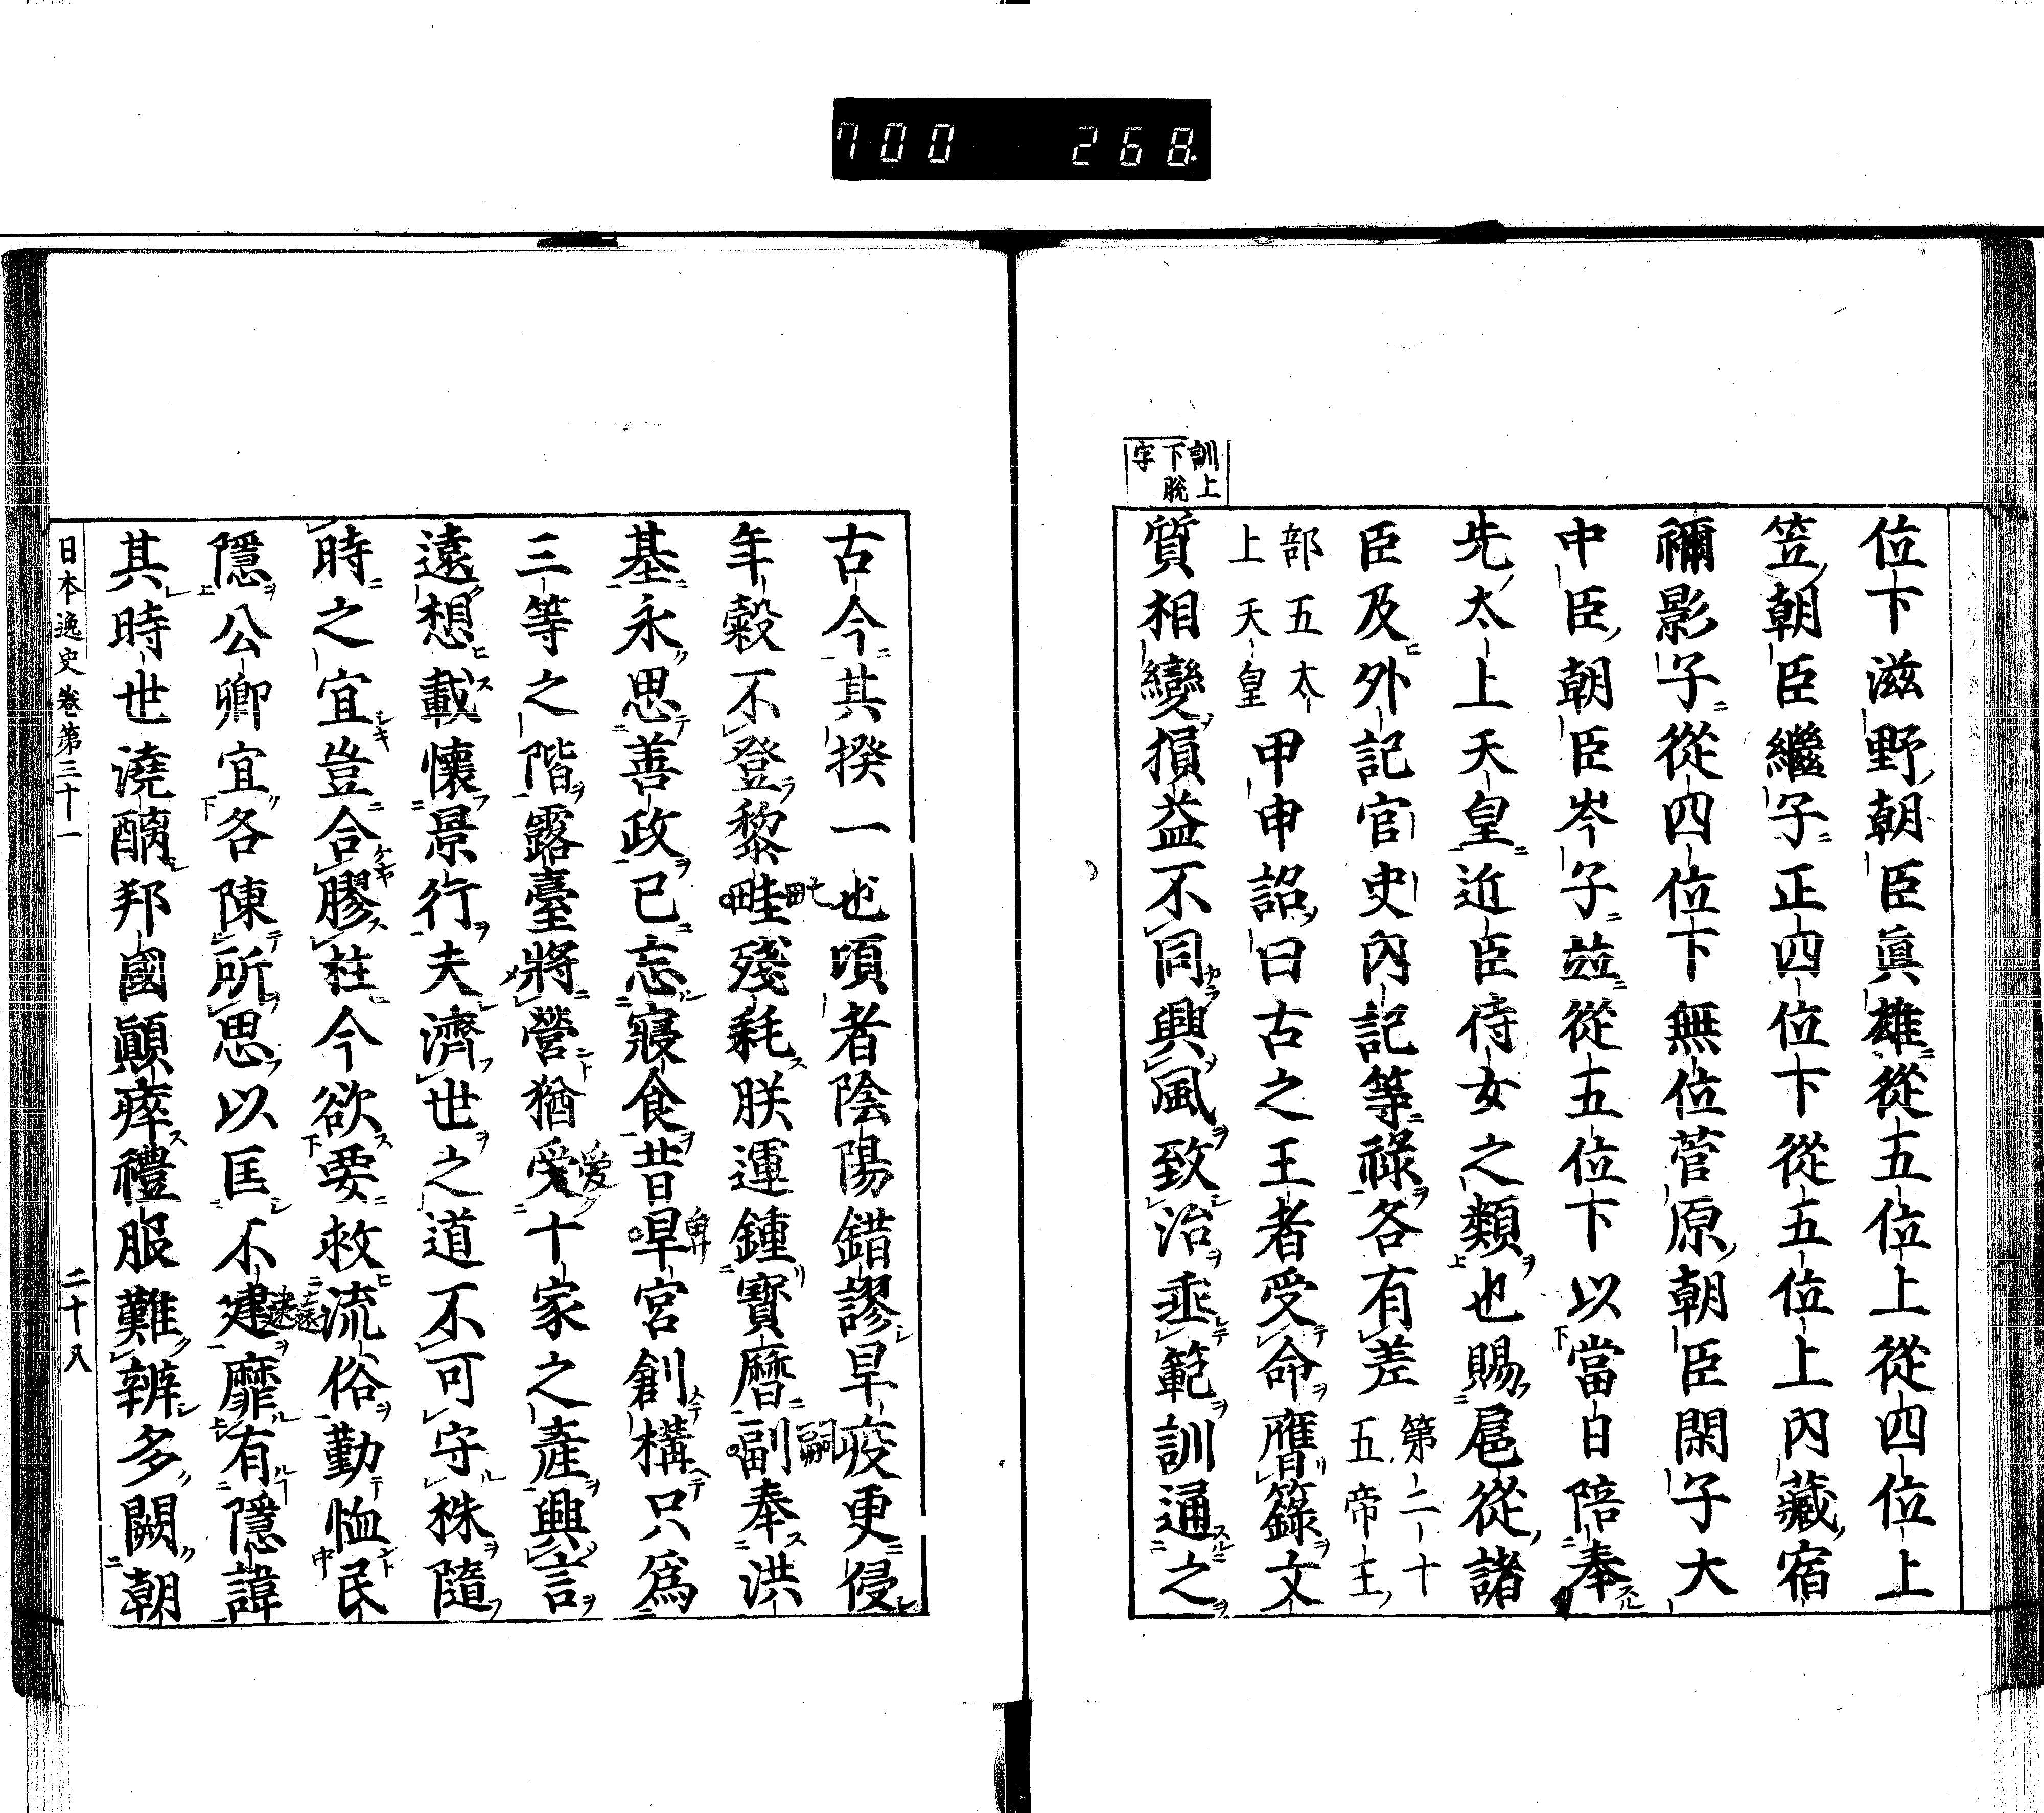 700 268
位下滋野朝臣眞雄從五位上從四位上
笠朝臣繼子正四位下從五位上內藏宿
禰影子從四位下無位菅原朝臣閑子大
中臣朝臣岑子並從五位下以當日陪奉
先太上天皇近臣侍女之類也賜扈從諸
臣及外記官史內記等祿各有差第二十五帝王
部五太上天皇甲申詔曰古之王者受命膺籙文
訓上下脫字
質相變損益不同興風致治垂範訓通之
古今其揆一也頃者陰陽錯謬旱疫更侵
年穀不登黎畦殘耗朕運鍾寶曆副奉洪
基永思善政已忘寢食昔早宮創構只爲
三等之階露臺將營猶受十家之產興言
遠想載懷景行夫濟世之道不可守株隨
時之宜豈合膠柱今欲要救流俗勤恤民
隱公卿宜各陳所思以匡不建靡有隱諱
其時世澆醨邦國顚瘁禮服難辨多闕朝
日本逸史卷第三十一 二十八